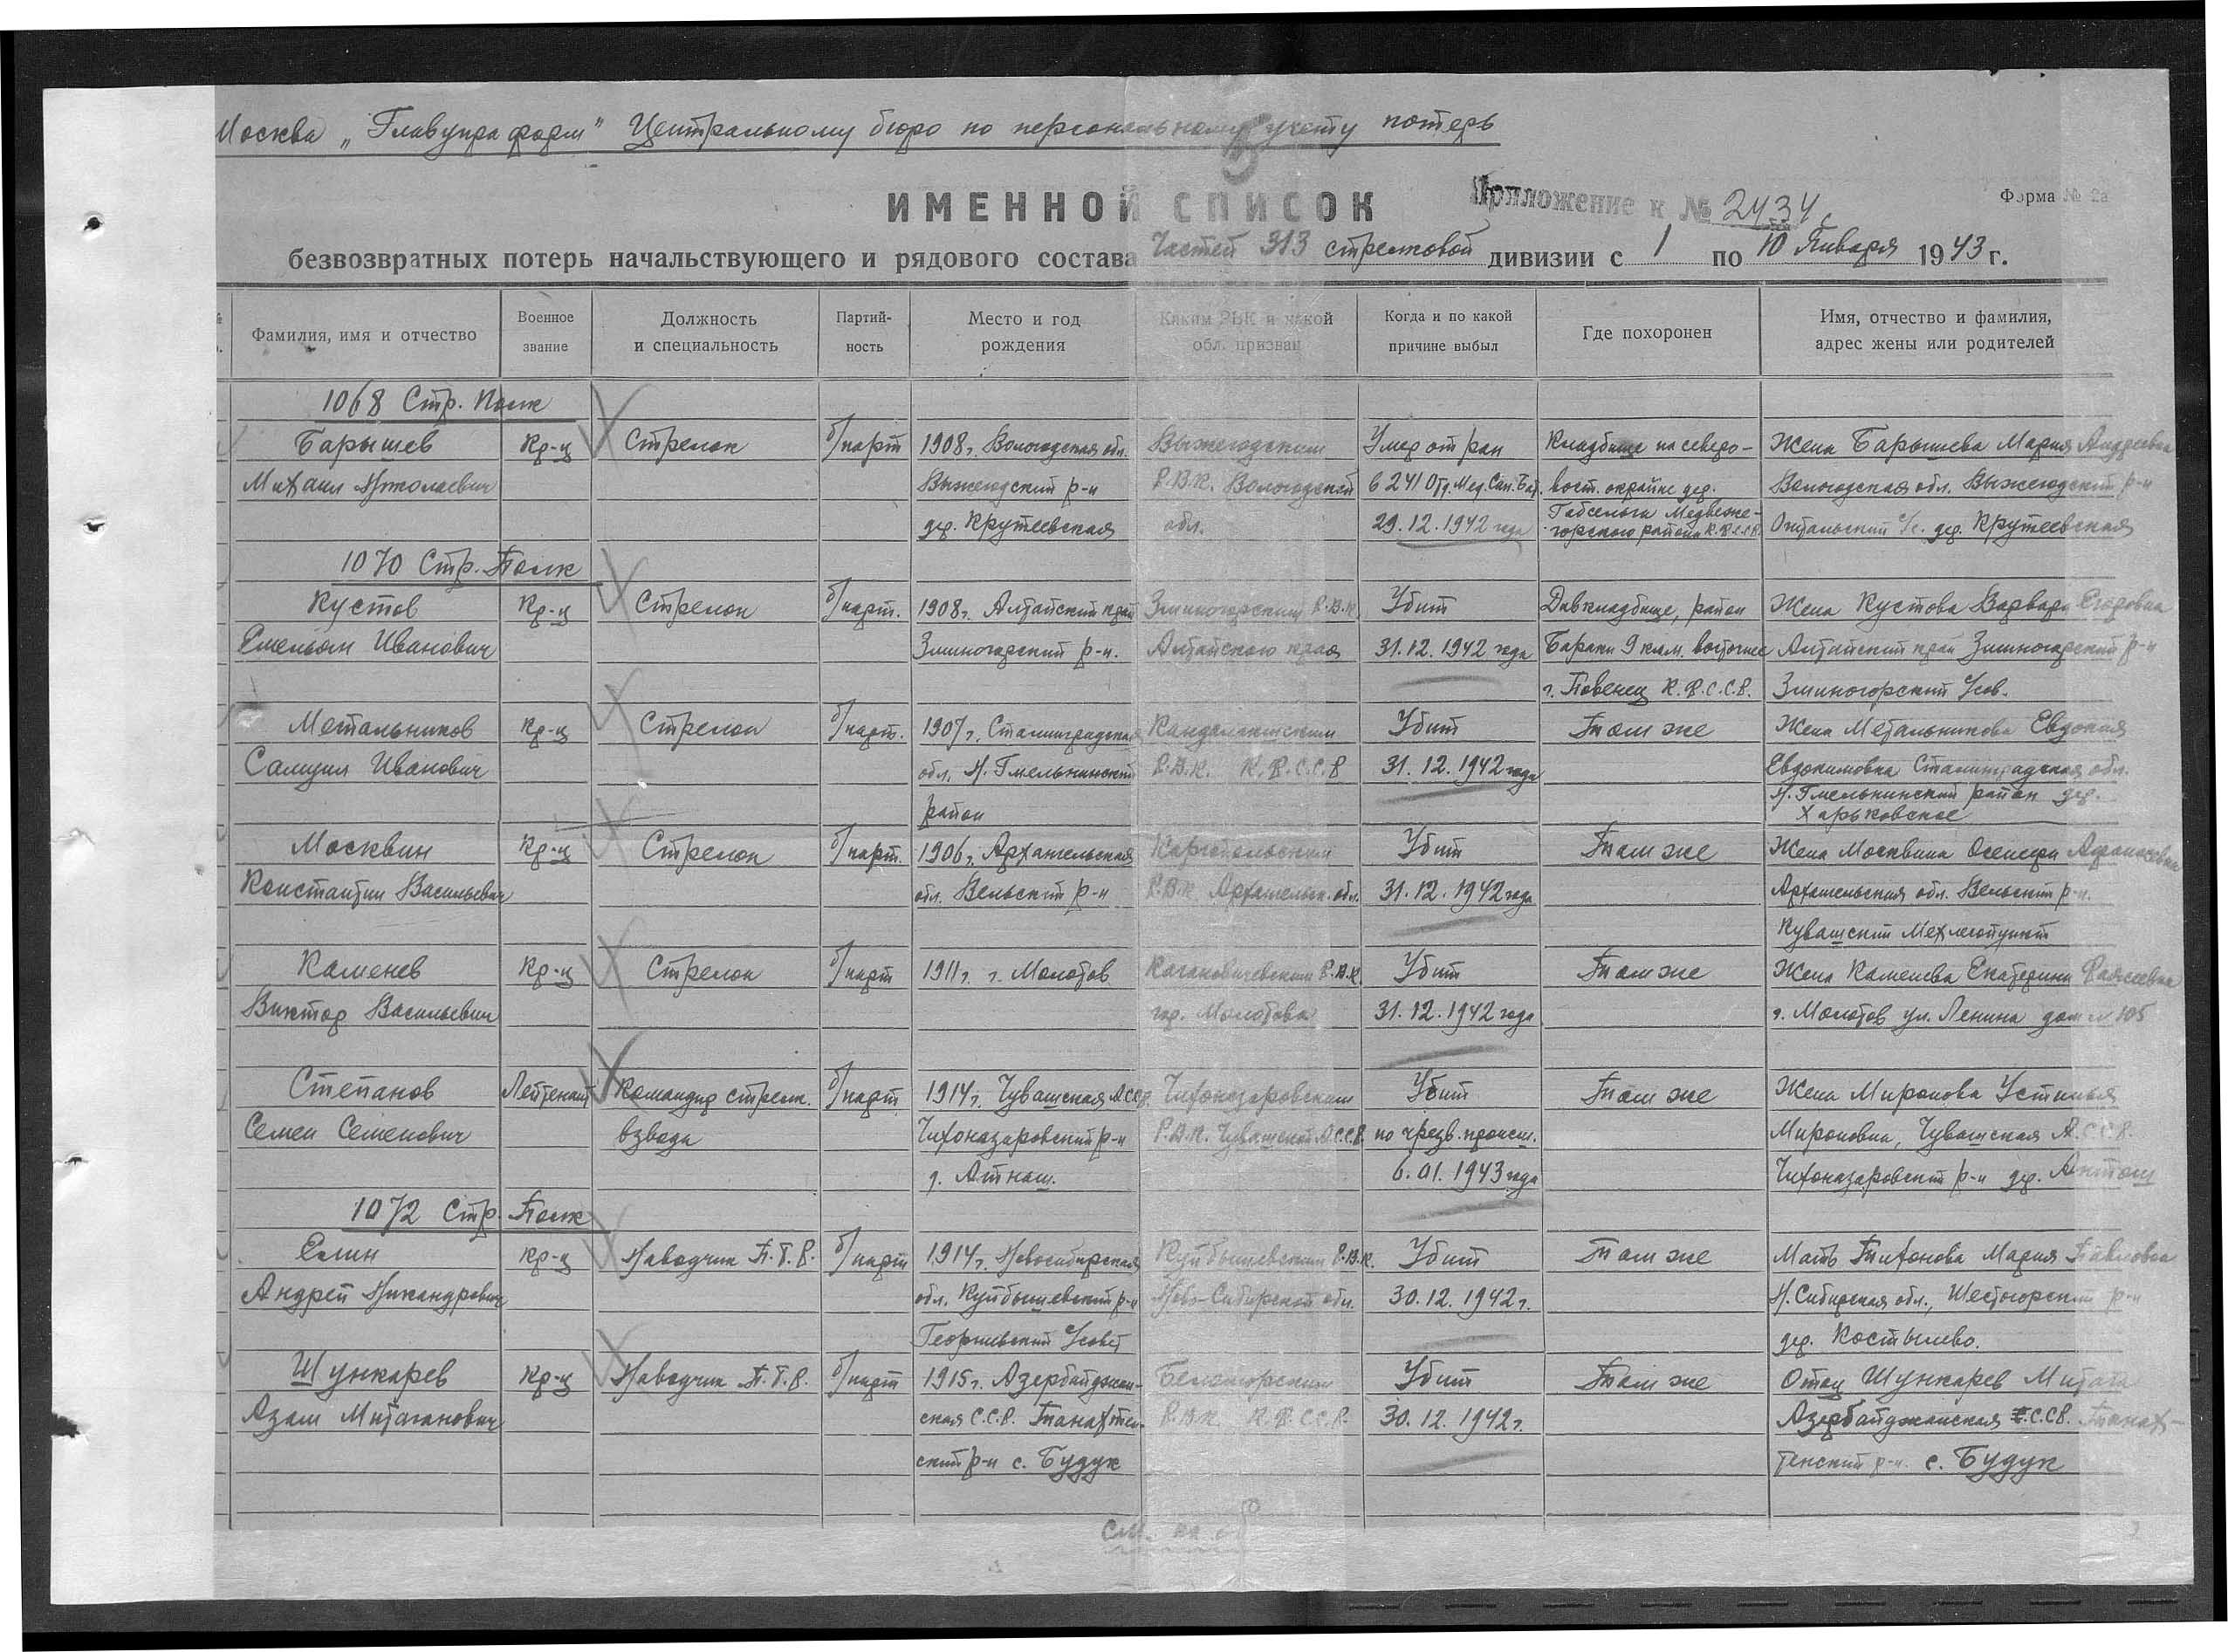 Москва „Главупраформ" Центральному бюро по персональному учету потерь
ИМЕННОЙ СПИСОК
Приложение к № 2434с
Форма № 2а
безвозвратных потерь начальствующего и рядового состава Частей 313 стрелковой дивизии с 1 по 10 Января 1943 г.
Фамилия, имя и отчество
Военное звание
Должность и специальность
Партийность
Место и год рождения
Каким РВК и какой обл. призван
Когда и по какой причине выбыл
Где похоронен
Имя, отчество и фамилия, адрес жены или родителей
1068 Стр. Полк
Барышев Кр-ц Стрелок б/парт 1908г. Вологодская обл. Вытегодским Умер от ран Кладбище на северо- Жена Барышева Мария Андреевна
Михаил Николаевич Вытегодский р-н Р.В.К. Вологодской в 241 Отд. Мед. Сан. Бат. вост. окраине дер. Вологодская обл. Вытегодский р-н
дер. Крутеевская обл. 29.12.1942 года Габсельга Медвеже-горского района К.Ф.С.С.Р. с/с. дер. Крутеевская
1070 Стр. Полк
Кустов Кр-ц Стрелок б/парт. 1908г. Алтайский край Змеиногорским Р.В.К. Убит Дивкладбище, район Жена Кустова Варвара Егоровна
Емельян Иванович Змеиногорский р-н. Алтайского края 31.12.1942 года Бараки 9 клм. восточнее Алтайский край Змеиногорский р-н
г. Повенец К.Ф.С.С.Р. Змеиногорский с/сов.
Метальников Кр-ц Стрелок б/парт. 1907г. Сталинградская Кандалакшским Убит Там же Жена Метальникова Евдокия
Самуил Иванович обл. Н. Гмелининский Р.В.К. К.Ф.С.С.Р 31.12.1942 года Евдокимовна Сталинградская обл.
район Н. Гмелининский район дер.
Харьковское
Москвин Кр-ц Стрелок б/парт. 1906г. Архангельская Каргопольским Убит Там же Жена Москвина Афанасьевна
Константин Васильевич обл. Вельский р-н Р.В.К. Архангельск. обл. 31.12.1942 года Архангельская обл. Вельский р-н.
Кувашский Мехлесопункт
Каменев Кр-ц Стрелок б/парт 1911г. г. Молотов Кагановичевским Р.В.К. Убит Там же Жена Каменева Екатерина
Виктор Васильевич гор. Молотова 31.12.1942 года г. Молотов ул. Ленина дом № 105
Степанов Лейтенант Командир стрелк. б/парт 1914г. Чувашская А.ССР. Чихоназаровским Убит Там же Жена Миронова Устинья
Семен Семенович взвода Чихоназаровский р-н Р.В.К. Чувашской А.С.С.Р. по чрезв. происш. Мироновна, Чувашская А.С.С.Р.
д. Атнаш. 6.01.1943 года Чихоназаровский р-н дер.
1072 Стр. Полк
Елин Кр-ц Наводчик П.Т.Р. б/парт 1914г. Новосибирская Куйбышевским Р.В.К. Убит Там же Мать Тихонова Мария Павловна
Андрей Никандрович обл. Куйбышевский р-н Ново-Сибирской обл. 30.12.1942г. Н. Сибирская обл.,
Георгиевский с/совет дер. Костылево.
Шункарев Кр-ц Наводчик П.Т.Р. б/парт 1915г. Азербайджан- Беломорским Убит Там же Отец Шункарев Митага
Азам Митаганович ская С.С.Р. Танахтен- Р.В.К. К.Ф.С.С.Р. 30.12.1942г. Азербайджанская С.С.Р. Танах-
ский р-н с. Будук тенский р-н. с. Будук
см. на об